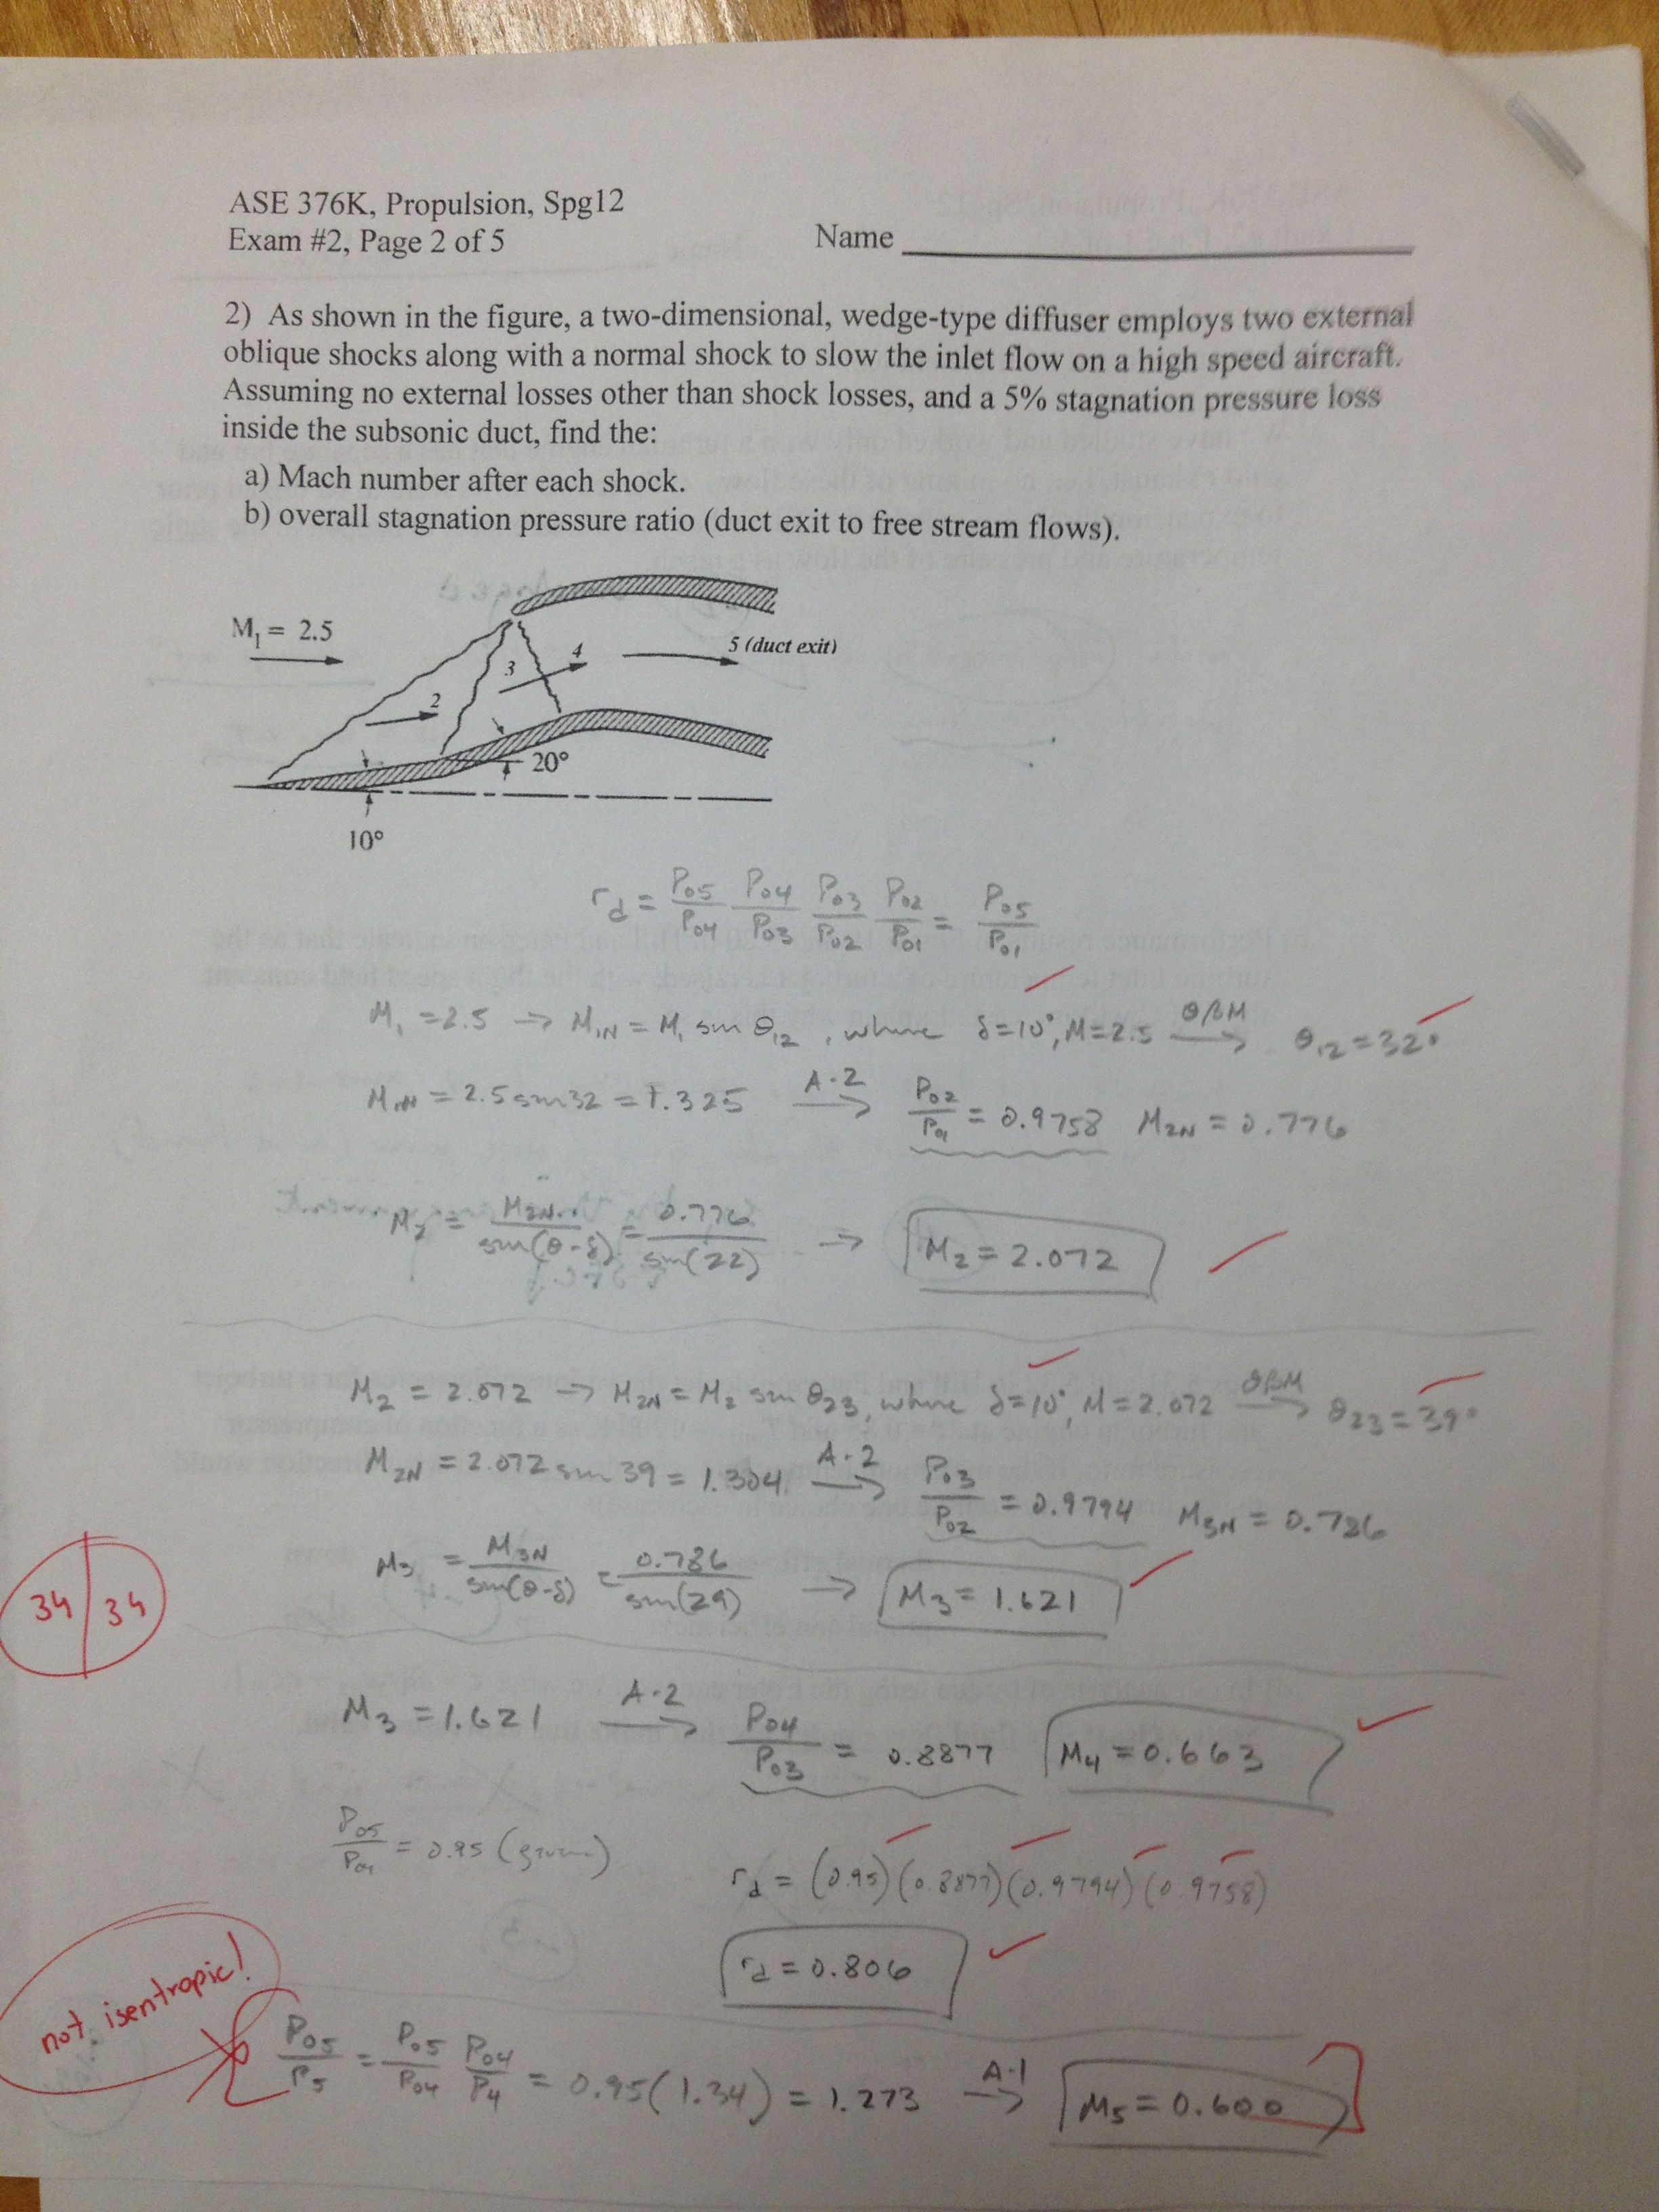 ASE 376K, Propulsion, Spg12
Exam #2, Page 2 of 5
Name
2) As shown in the figure, a two-dimensional, wedge-type diffuser employs two external
oblique shocks along with a normal shock to slow the inlet flow on a high speed aircraft.
Assuming no external losses other than shock losses, and a 5% stagnation pressure loss
inside the subsonic duct, find the:
a) Mach number after each shock.
b) overall stagnation pressure ratio (duct exit to free stream flows).
M₁ = 2.5
2
3
4
5 (duct exit)
20°
10°
r_d = P₀₅/P₀₄ P₀₄/P₀₃ P₀₃/P₀₂ P₀₂/P₀₁ = P₀₅/P₀₁
M₁ = 2.5 → M₁N = M₁ sin θ₁₂, where δ=10°, M=2.5 θβM → θ₁₂ = 32°
M₁N = 2.5 sin 32 = 1.325 A-2 → P₀₂/P₀₁ = 0.9758 M₂N = 0.776
M₂ = M₂N/sin(θ-δ) = 0.776/sin(22) → M₂ = 2.072
M₂ = 2.072 → M₂N = M₂ sin θ₂₃, where δ=10°, M=2.072 θβM → θ₂₃ = 39°
M₂N = 2.072 sin 39 = 1.304 A-2 → P₀₃/P₀₂ = 0.9794 M₃N = 0.786
M₃ = M₃N/sin(θ-δ) = 0.786/sin(29) → M₃ = 1.621
34/34
M₃ = 1.621 A-2 → P₀₄/P₀₃ = 0.8877 M₄ = 0.663
P₀₅/P₀₄ = 0.95 (given)
r_d = (0.95)(0.8877)(0.9794)(0.9758)
r_d = 0.806
not isentropic!
P₀₅/P₅ = P₀₅/P₀₄ P₀₄/P₄ = 0.95(1.34) = 1.273 A-1 → M₅ = 0.600